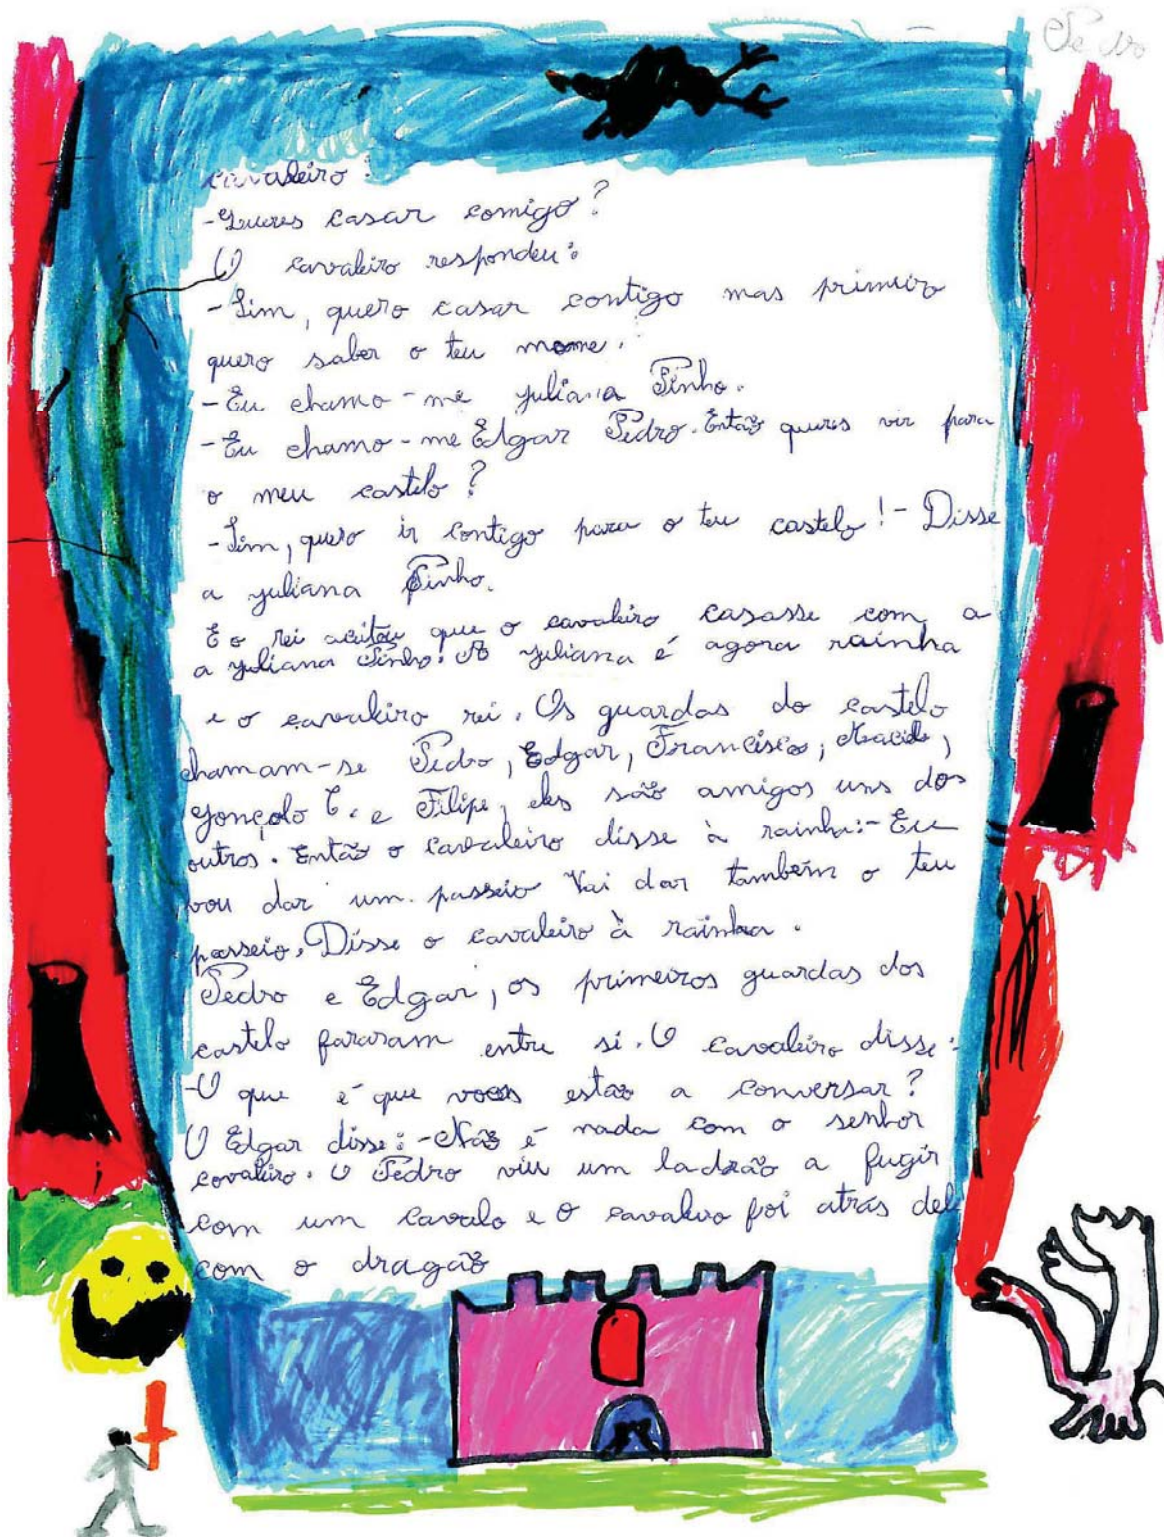 Pedro
cavaleiro:
-Queres casar comigo?
O cavaleiro respondeu:
-Sim, quero casar contigo mas primeiro
quero saber o teu mome.
-Eu chamo-me Juliana Pinho.
-Eu chamo-me Edgar Pedro. Então queres vir para
o meu castelo?
-Sim, quero ir contigo para o teu castelo! - Disse
a Juliana Pinho.
E o rei aceitou que o cavaleiro casasse com a
a Juliana Pinho. A Juliana é agora rainha
e o cavaleiro rei. Os guardas do castelo
chamam-se Pedro, Edgar, Francisco,
Gonçalo C. e Filipe, eles são amigos uns dos
outros. Então o cavaleiro disse à rainha:- Eu
vou dar um passeio Vai dar também o teu
passeio. Disse o cavaleiro à rainha.
Pedro e Edgar, os primeiros guardas dos
castelo fararam entre si. O cavaleiro disse:
-O que é que voces estão a conversar?
O Edgar disse: -Não é nada com o senhor
covaleiro. O Pedro viu um ladrão a fugir
com um cavalo e o cavaleiro foi atrás del
com o dragão